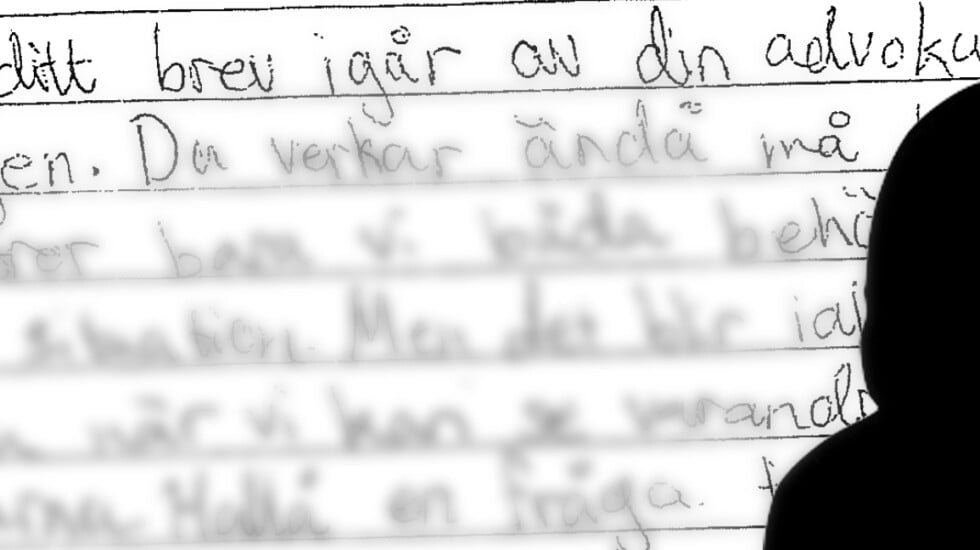 ditt brev igår av din advoka
en. Du verkar ändå må
bara vi båda behö
situation. Men det blir iaf
när vi kan se varandr
Hallå en fråga.